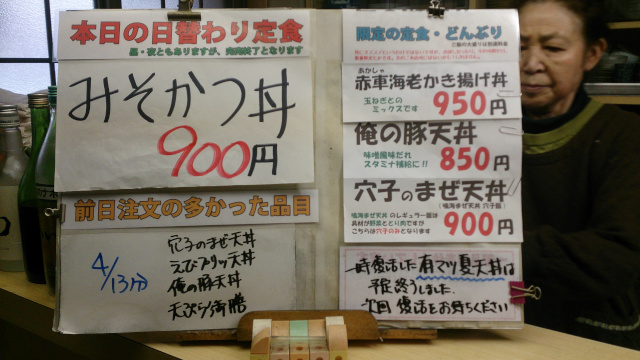 本日の日替わり定食
昼・夜ともありますが、完売終了となります
みそかつ丼
900円
前日注文の多かった品目
4/13分
穴子のまぜ天丼
えびブリッツ天丼
俺の豚天丼
天ぷら御膳
限定の定食・どんぶり
あかしゃ
赤車海老かき揚げ丼
玉ねぎとの
ミックスです
950円
俺の豚天丼
味噌風味だれ
スタミナ補給に!!
850円
穴子のまぜ天丼
鳴海まぜ天丼 のレギュラー版は
具材が野菜ととり肉ですが
こちらは穴子のみとなります
(鳴海まぜ天丼 穴子版)
900円
一時復活した有マツ夏天丼は
予定終了しました
次回復活をお待ちください